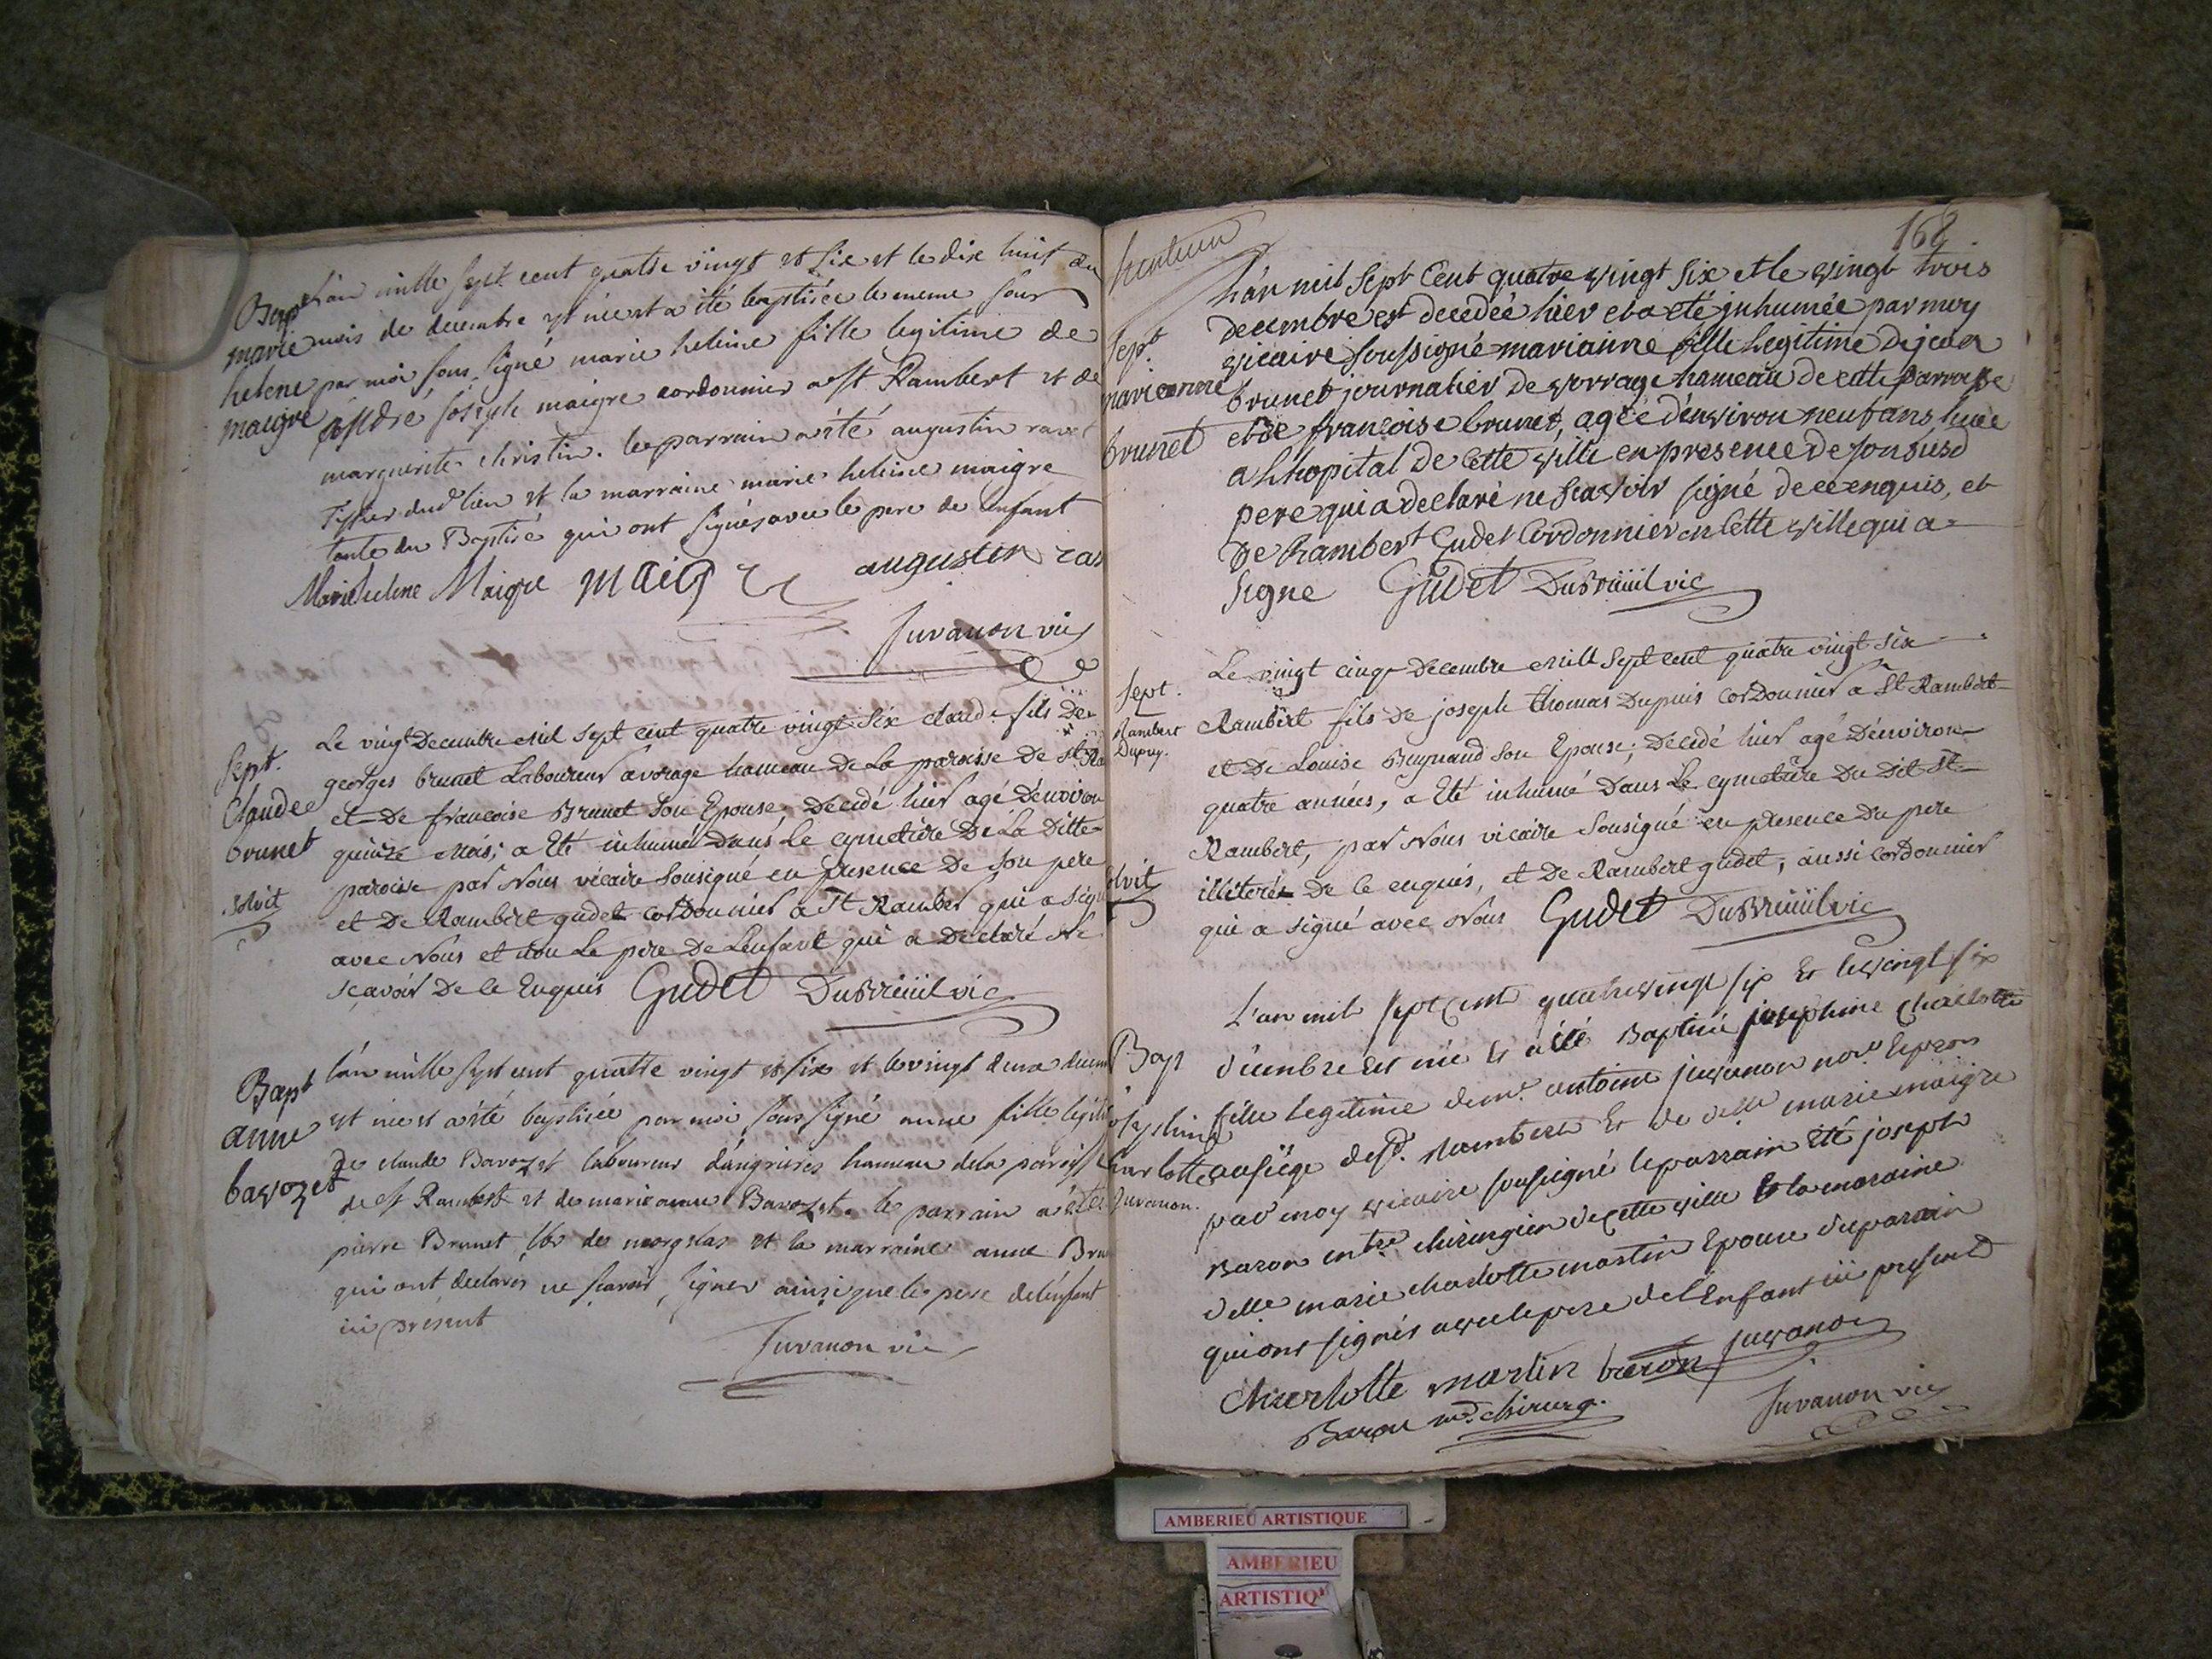 Bapt
marie
helene
maigre
l'an mille sept cent quatre vingt et six et le dix huit du
mois de decembre est née et a été baptisée le meme jour
par moi sous signé marie heleine fille legitime de
joseph maigre cordonnier a st Rambert et de
marguerite christin. le parrain a été augustin ravet
tissier dud lieu et la marraine marie heleine maigre
tante du Baptisé qui ont signés avec le pere de lenfant
Marie helene Maigre maigre augustin rav
Juvanon vic
Sept.
Claude
brunet
solvit
Le vingt Decembre mil sept cent quatre vingt six claude fils De
georges brunet Laboureur a vorage hameau de La paroisse de St Ra
et De françoise Brunet Son Epouse, Décédé hier agé Dénviron
quinze mois; a Eté inhumé Dans le cymetiere De La Ditte
paroisse par Nous vicaire Sousigné en presence De Son pere
et De Rambert gudet cordonnier a St Rambert qui a signé
avec Nous et non Le pere De Lenfant qui a Déclaré Ne
sçavoir De ce Enquis Gudet Dubreüil vic
Bapt
anne
bavozet
l'an mille sept cent quatre vingt et six et le vingt deux decem
est née et a été baptisée par moi sous signé anne fille legiti
de claude Bavozet laboureur d'angrieres hameau de la paroisse
de st Rambert et de marie anne Bavozet. le parrain a été
pierre Brunet lbr de morgelas et la marraine anne Bru
qui ont declarés ne sçavoir signer ainsi que le pere de lenfant
ici présent
Juvanon vic
168
Sept.
marieanne
brunet
L'an mil sept Cent quatre vingt six et le vingt trois
decembre est decedeé hier et a eté inhumée par moy
vicaire soussigné marianne fille legitime de jean
brunet journalier de vorrage hameau de cette parroisse
et de francoise brunet, ageé d'environ neuf ans,
a Lhopital de Cette ville en presence de son susd
pere qui a declaré ne scavoir signé de ce enquis, et
De Rambert Gudet Cordonnier en Cette ville qui a
signe Gudet Dubreüil vic
Sept.
Rambert
Dupuy.
solvit
Le vingt cinq Decembre mill Sept cent quatre vingt six
Rambert fils De joseph thomas Dupuis Cordonnier a St Rambert
et De Louise Bugnand Son Epouse; Décédé hier agé Dénviron
quatre années, a Eté inhumé Dans Le cymetiere Du Dit St
Rambert, par Nous vicaire Sousigné en presence Du pere
illiteré De ce enquis, et De Rambert gudet, aussi cordonnier
qui a signé avec Nous Gudet Dubreüil vic
Bap
josephine
charlotte
Juvanon.
L'an mil sept cent quatrevingt six Et le vingt six
décembre Est née Et a été Baptisée josephine Charlotte
fille Legitime de mr. antoine juvanon nore. Er
au siège de st. Rambert Et de delle marie maigre
par moy vicaire soussigné le parrain Eté joseph
Baron mtre chirurgien de Cette ville Et la maraine
delle marie charlotte martin Epouse du parain
qui ont signés avec le pere de l'Enfant ici present
Charlotte martin baron juvanon
Baron md. chirurg.
Juvanon vic
AMBERIEU ARTISTIQUE
AMBERIEU
ARTISTIQ